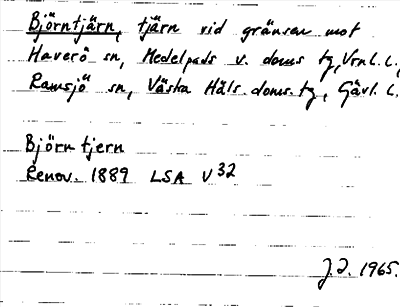 Björntjärn, tjärn vid gränsen mot
Haverö sn, Medelpads v. doms tg, Vrnl. l.,
Ramsjö sn, Västra Häls. doms. tg, Gävl. l.
Björn tjern
Renov. 1889 LSA V32
J.J. 1965.